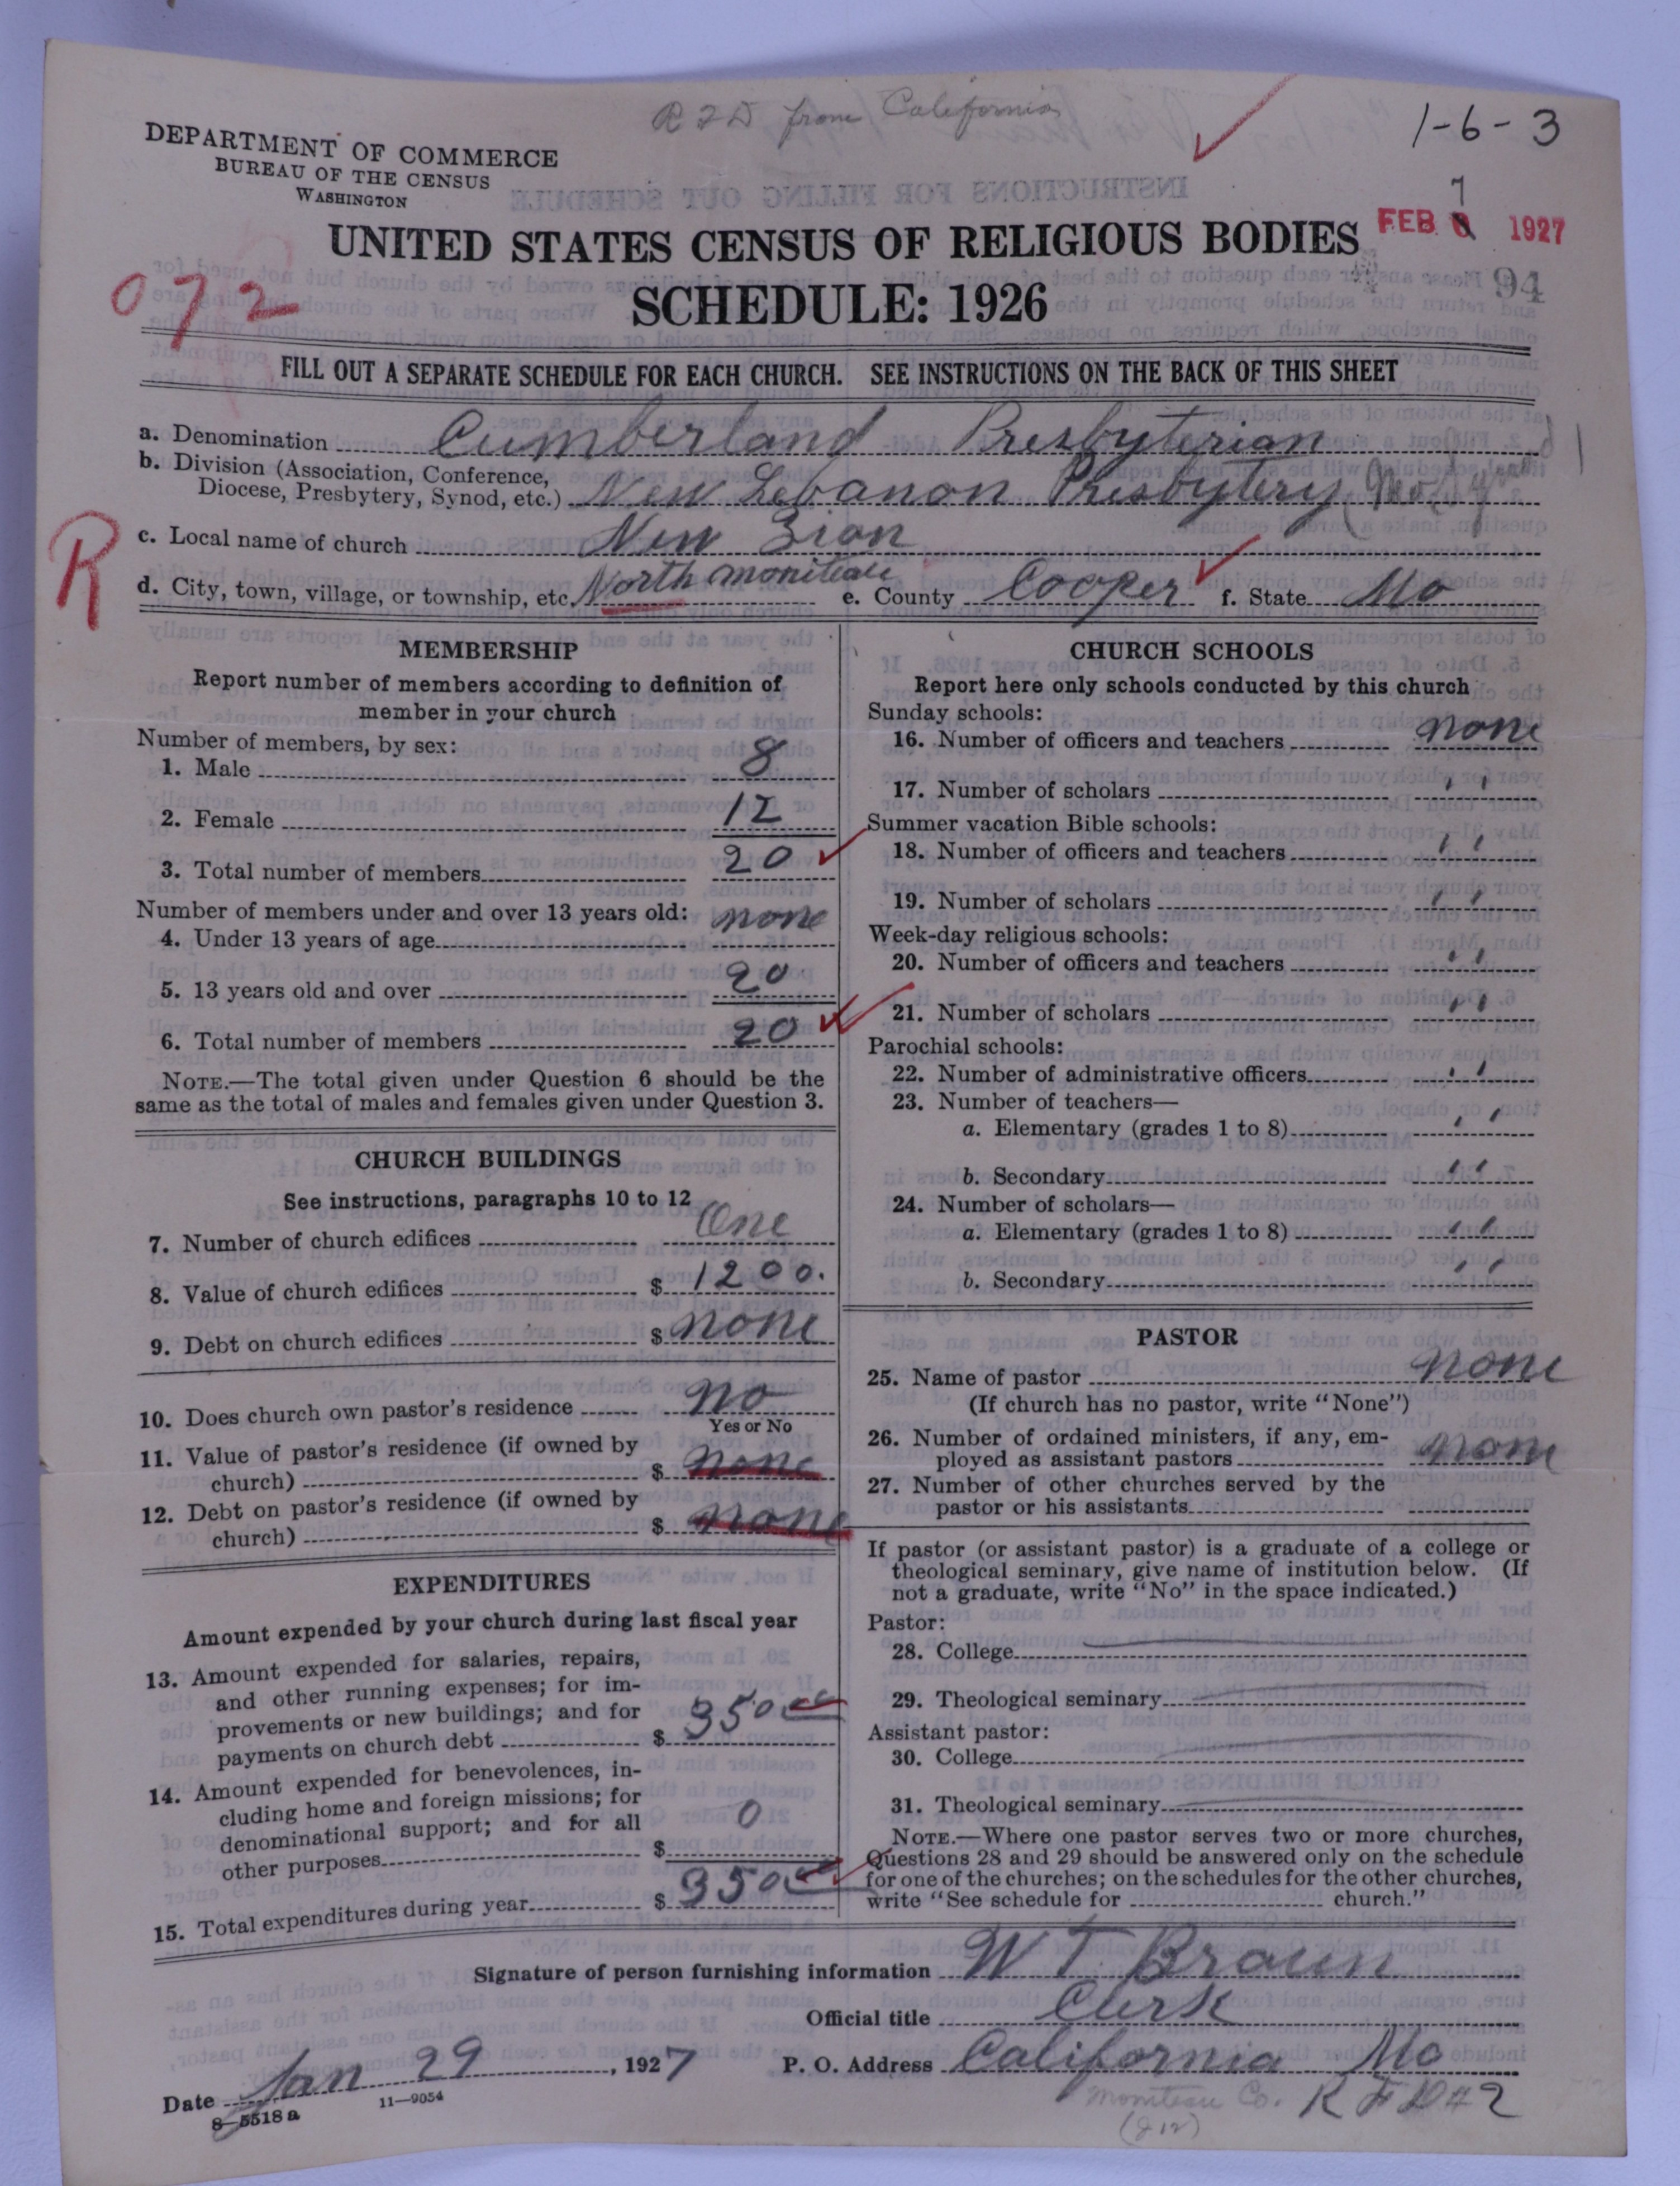 R F D from California
1-6-3
DEPARTMENT OF COMMERCE
BUREAU OF THE CENSUS
WASHINGTON
7
FEB 8 1927
UNITED STATES CENSUS OF RELIGIOUS BODIES
94
072
SCHEDULE: 1926
FILL OUT A SEPARATE SCHEDULE FOR EACH CHURCH. SEE INSTRUCTIONS ON THE BACK OF THIS SHEET
a. Denomination Cumberland Presbyterian
b. Division (Association, Conference,
Diocese, Presbytery, Synod, etc.) New Lebanon Presbytery
R
c. Local name of church New Zion
d. City, town, village, or township, etc. North Moniteau e. County Cooper f. State Mo
MEMBERSHIP
Report number of members according to definition of
member in your church
Number of members, by sex:
1. Male 8
2. Female 12
3. Total number of members 20
Number of members under and over 13 years old:
4. Under 13 years of age none
5. 13 years old and over 20
6. Total number of members 20
NOTE.—The total given under Question 6 should be the
same as the total of males and females given under Question 3.
CHURCH BUILDINGS
See instructions, paragraphs 10 to 12
7. Number of church edifices One
8. Value of church edifices $ 1200.
9. Debt on church edifices $ none
10. Does church own pastor's residence no
Yes or No
11. Value of pastor's residence (if owned by
church) $ none
12. Debt on pastor's residence (if owned by
church) $ none
EXPENDITURES
Amount expended by your church during last fiscal year
13. Amount expended for salaries, repairs,
and other running expenses; for im-
provements or new buildings; and for
payments on church debt $ 350 00
14. Amount expended for benevolences, in-
cluding home and foreign missions; for
denominational support; and for all
other purposes $ 0
15. Total expenditures during year $ 350 00
CHURCH SCHOOLS
Report here only schools conducted by this church
Sunday schools:
16. Number of officers and teachers none
17. Number of scholars ' '
Summer vacation Bible schools:
18. Number of officers and teachers ' '
19. Number of scholars ' '
Week-day religious schools:
20. Number of officers and teachers ' '
21. Number of scholars ' '
Parochial schools:
22. Number of administrative officers ' '
23. Number of teachers—
a. Elementary (grades 1 to 8) ' '
b. Secondary ' '
24. Number of scholars—
a. Elementary (grades 1 to 8) ' '
b. Secondary ' '
PASTOR
25. Name of pastor none
(If church has no pastor, write "None")
26. Number of ordained ministers, if any, em-
ployed as assistant pastors none
27. Number of other churches served by the
pastor or his assistants
If pastor (or assistant pastor) is a graduate of a college or
theological seminary, give name of institution below. (If
not a graduate, write "No" in the space indicated.)
Pastor:
28. College
29. Theological seminary
Assistant pastor:
30. College
31. Theological seminary
NOTE.—Where one pastor serves two or more churches,
Questions 28 and 29 should be answered only on the schedule
for one of the churches; on the schedules for the other churches,
write "See schedule for church."
Signature of person furnishing information W T Braun
Official title Clerk
Date Jan 29, 1927 P. O. Address California Mo
8—5518 a 11—9054 Moniteau Co. R F D #2